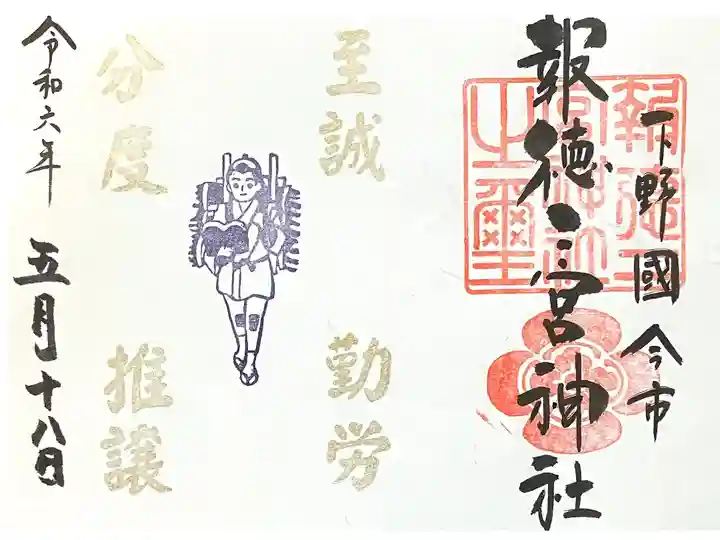 下野國今市
報徳二宮神社
報徳二宮神社之璽
至誠
勤労
分度
推譲
令和六年
五月十八日